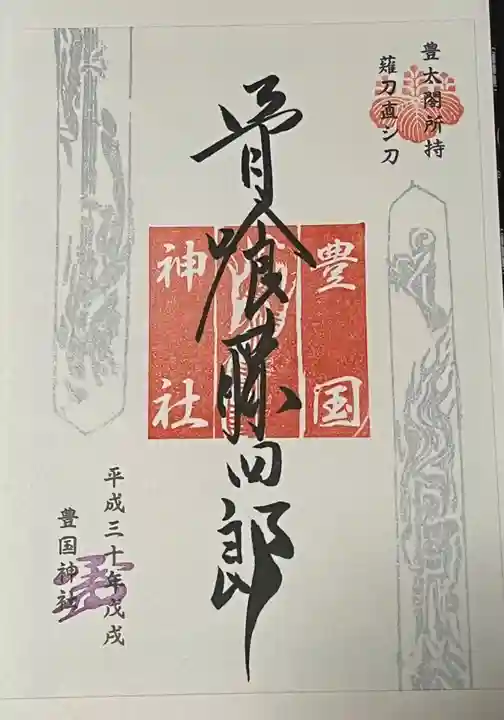 豊太閤所持
薙刀直シ刀
骨喰藤四郎
豊国
神社
平成三十年戊戌
豊国神社